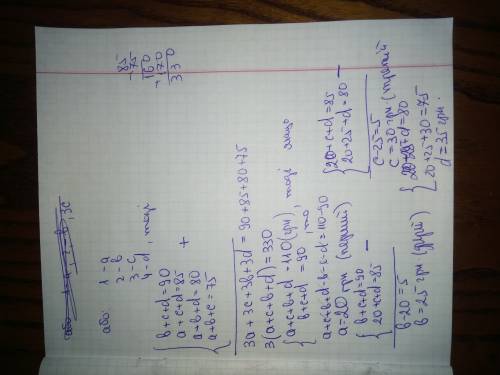 або 1-a
2-b
3-c
4-d, тоді
b+c+d=90
a+c+d=85
a+b+d=80
a+b+c=75
+
3a+3c+3b+3d=90+85+80+75
3(a+c+b+d)=330
a+c+b+d=110(грн), тоді якщо
b+c+d=90, то
a+c+b+d-b-c-d=110-90
a=20 грн (перший)
b+c+d=90
20+c+d=85
-
b-20=5
b=25 грн (другий)
85
+75
160
+170
330
20+c+d=85
20+25+d=80
-
c-25=5
c=30 грн (третій)
20+25+d=80
20+25+30=75
d=35 грн.